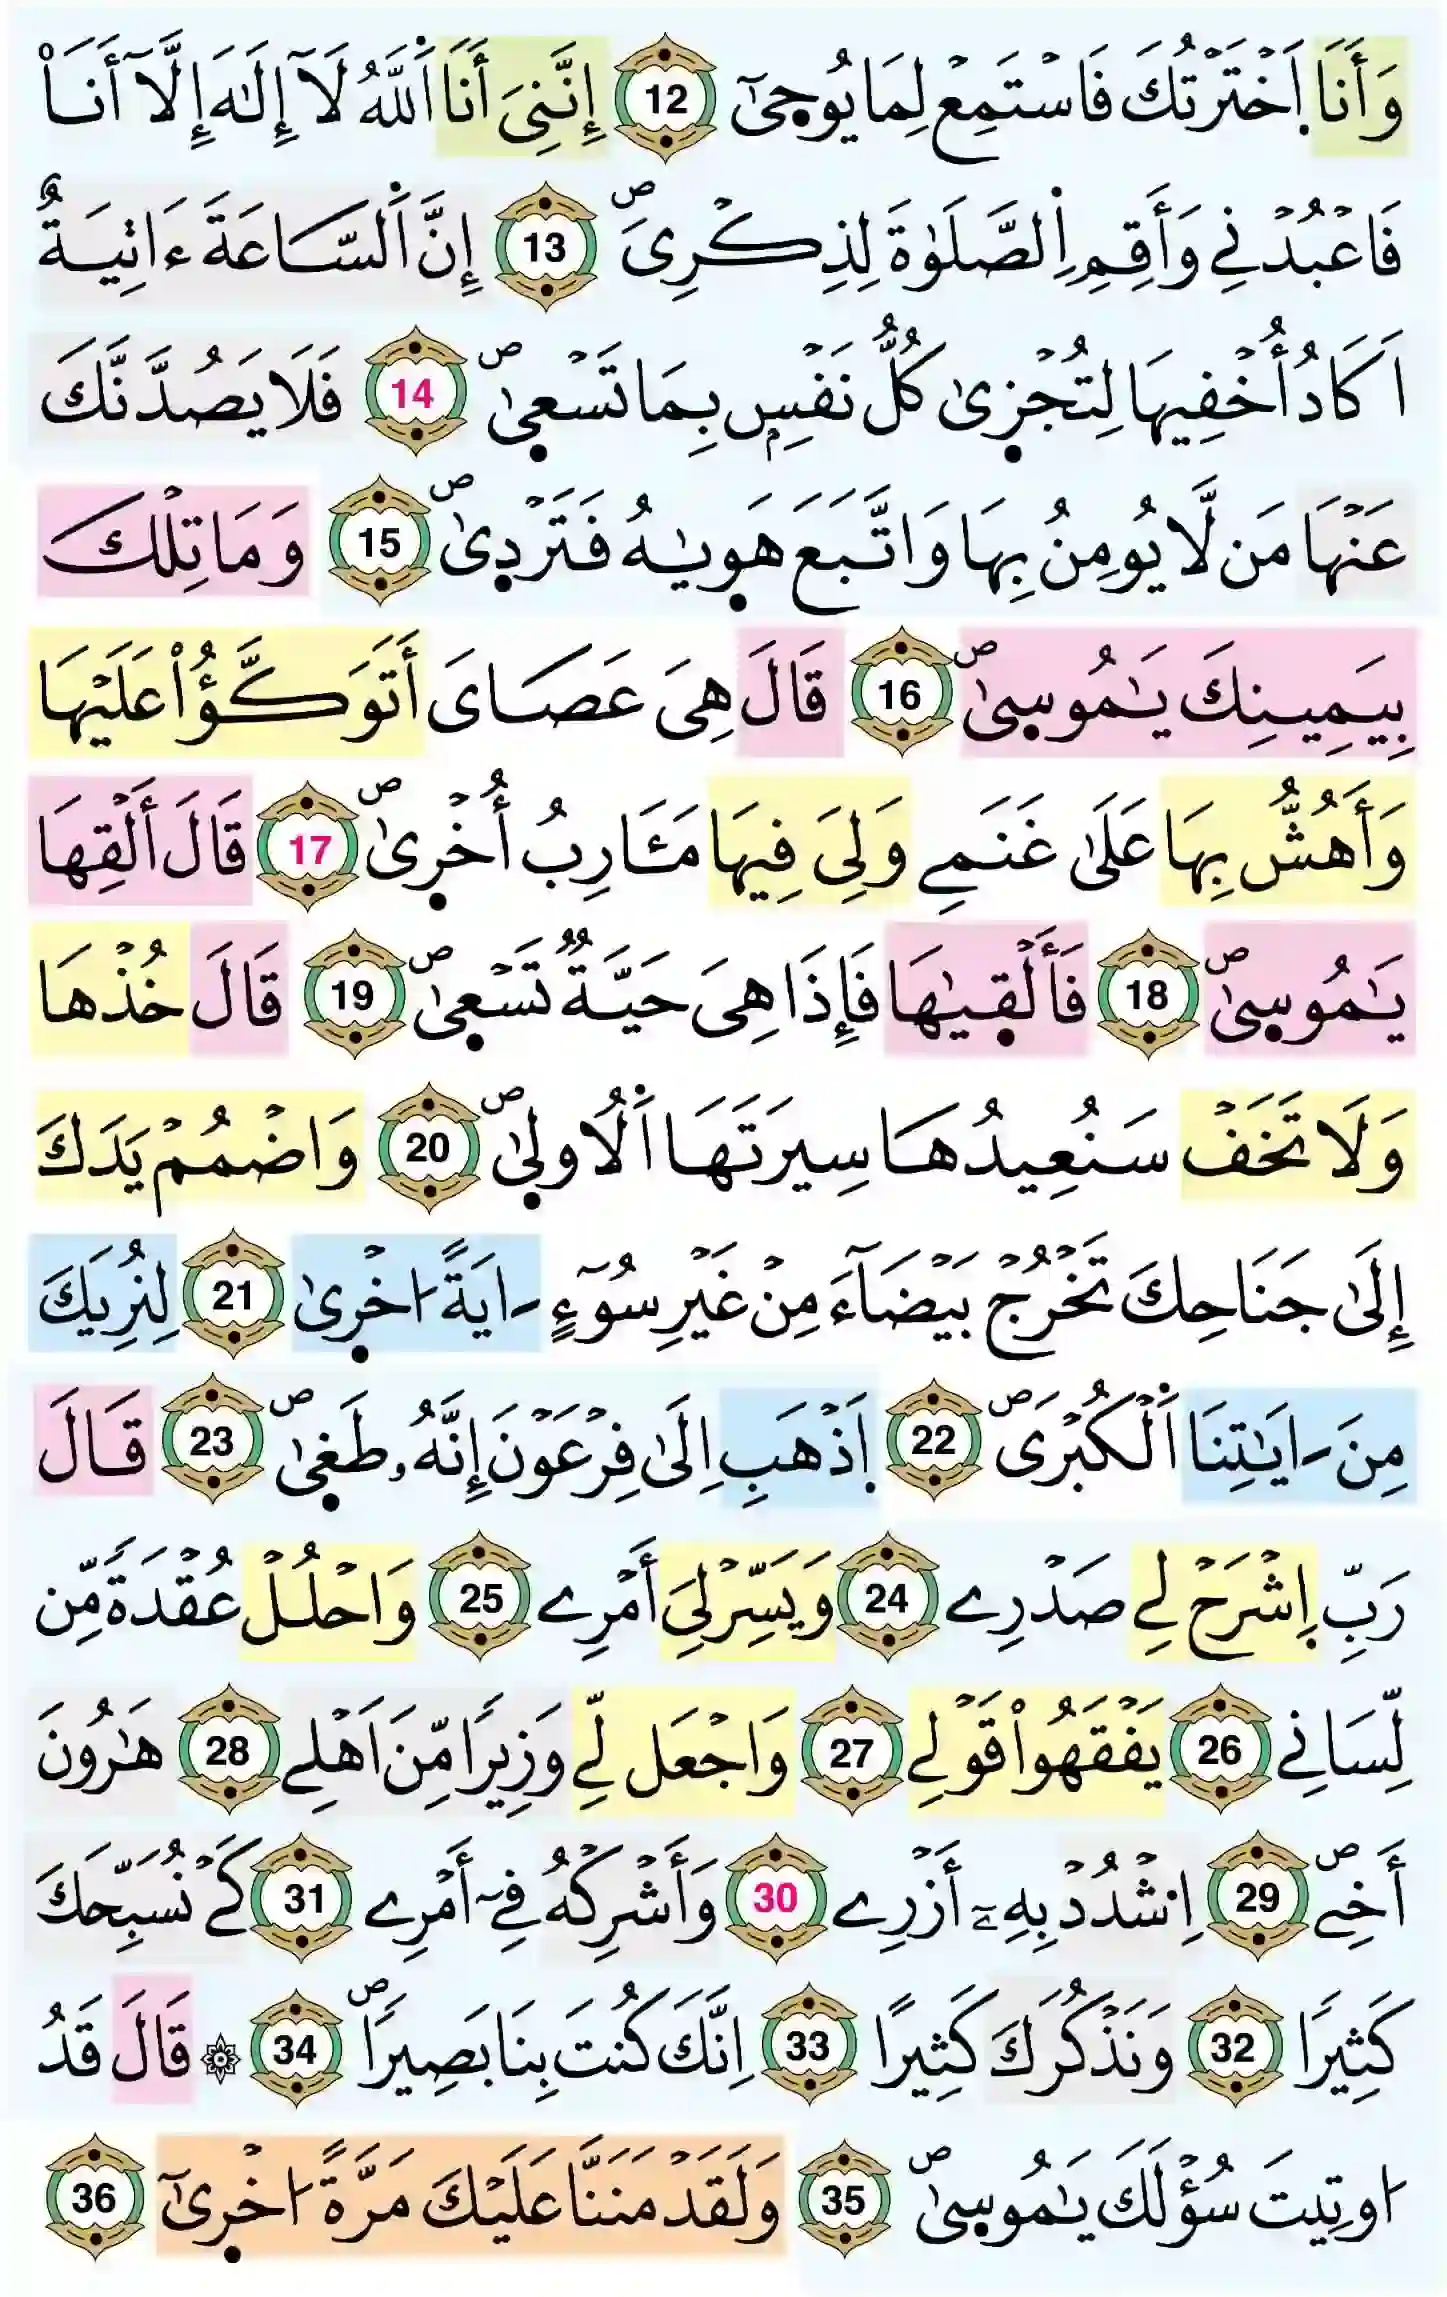 وَأَنَا اَ۪خْتَرْتُكَ فَاسْتَمِعْ لِمَا يُوح۪ىٰٓ 12 إِنَّنِىَ أَنَا اَ۬للَّهُ لَآ إِلَٰهَ إِلَّآ أَنَا۠
فَاعْبُدْنِے وَأَقِمِ اِ۬لصَّلَوٰةَ لِذِكْرِىَ ۖ 13 إِنَّ اَ۬لسَّاعَةَ ءَاتِيَةٌ
اَ كَادُ أُخْفِيهَا لِتُجْز۪ىٰ كُلُّ نَفْسِۢ بِمَا تَسْع۪ىٰ ۖ 14 فَلَا يَصُدَّنَّكَ
عَنْهَا مَن لَّا يُومِنُ بِهَا وَاتَّبَعَ هَو۪يٰهُ فَتَرْد۪ىٰ ۖ 15 وَمَا تِلْكَ
بِيَمِينِكَ يَٰمُوس۪ىٰ ۖ 16 قَالَ هِىَ عَصَاىَ أَتَوَكَّؤُاْ عَلَيْهَا
وَأَهُشُّ بِهَا عَلَىٰ غَنَمِے وَلِىَ فِيهَا مَـَٔارِبُ أُخْر۪ىٰ ۖ 17 قَالَ أَلْقِهَا
يَٰمُوس۪ىٰ ۖ 18 فَأَلْق۪يٰهَا فَإِذَا هِىَ حَيَّةٌ تَسْع۪ىٰ ۖ 19 قَالَ خُذْهَا
وَلَا تَخَفْ سَنُعِيدُهَا سِيرَتَهَا اَ۬لُاول۪ىٰ ۖ 20 وَاضْمُمْ يَدَكَ
إِلَىٰ جَنَاحِكَ تَخْرُجْ بَيْضَآءَ مِنْ غَيْرِ سُوٓءٍ ـَايَةً اخْر۪ىٰ 21 لِنُرِيَكَ
مِنَ ـَايَٰتِنَا اَ۬لْكُبْرَى ۖ 22 اَ۪ذْهَبِ اِلَىٰ فِرْعَوْنَ إِنَّهُۥ طَغ۪ىٰ ۖ 23 قَالَ
رَبِّ اِ۪شْرَحْ لِے صَدْرِے 24 وَيَسِّرْ لِىَ أَمْرِے 25 وَاحْلُلْ عُقْدَةً مِّن
لِّسَانِے 26 يَفْقَهُواْ قَوْلِے 27 وَاجْعَل لِّے وَزِيرًا مِّنَ اَهْلِے 28 هَٰرُونَ
أَخِے ۖ 29 اِ۟شْدُدْ بِهِۦٓ أَزْرِے 30 وَأَشْرِكْهُ فِےٓ أَمْرِے 31 كَےْ نُسَبِّحَكَ
كَثِيرًا 32 وَنَذْكُرَكَ كَثِيرًا 33 اِنَّكَ كُنتَ بِنَا بَصِيرًا ۖ 34 ۞ قَالَ قَدُ
اوتِيتَ سُؤْلَكَ يَٰمُوس۪ىٰ ۖ 35 وَلَقَدْ مَنَنَّا عَلَيْكَ مَرَّةً اخْر۪ىٰٓ 36